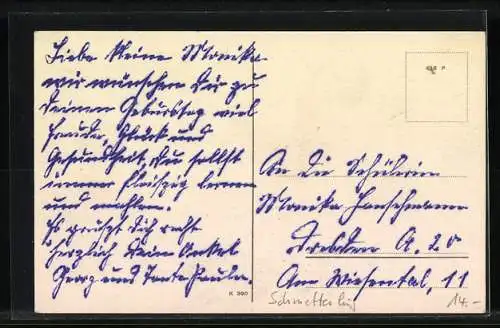 Liebe kleine Monika
wir wünschen Dir zu
Deinem Geburtstag viel
Freude, Glück und
Gesundheit, Du sollst
immer fleißig lernen
und
Es grüßt Dich recht
herzlich Dein Onkel
Georg und Tante Paula.
An die Schülerin
Monika
Dresden A. 20
Am Wiesental, 11
K 390
Schmetterling
14.-